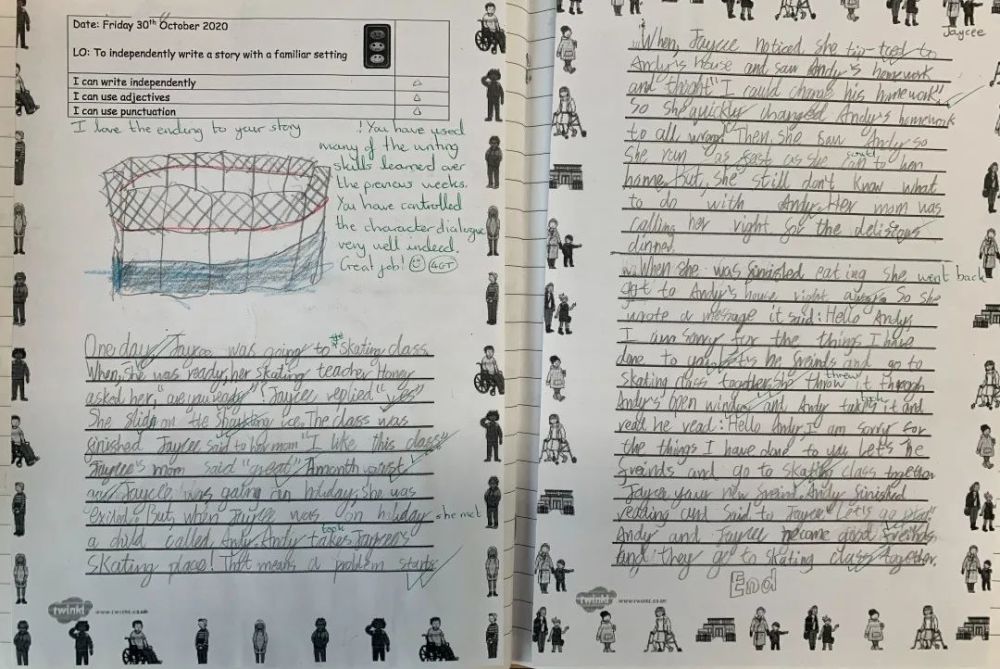 Date: Friday 30th October 2020
LO: To independently write a story with a familiar setting
I can write independently
I can use adjectives
I can use punctuation
I love the ending to your story ! You have used
many of the writing
skills learned over
the previous weeks.
You have controlled
the character dialogue
very well indeed.
Great job!
One day, Jaycee was going to skating class.
When, she was ready, her skating teacher Honey
asked her, "are you ready"? Jaycee replied "yes"
She slid on the skating ice. The class was
finished Jaycee said to her mom "I like this class"
Jaycee's mom said "great". A month
Jaycee was going on holiday, she was
But, when Jaycee was on holiday she met
a child called Andy. Andy takes took Jaycee's
skating place! That means a problem starts.
twinkl www.twinkl.co.uk
Jaycee
When, Jaycee noticed she tip-toed to
Andy's house and saw Andy's homework
and "I could change his homework"
So she quickly changed Andy's homework
to all wrong. Then, she saw Andy so
She run as fast as she can could to her
home. But, she still don't know what
to do with Andy. Her mom was
calling her right for the
dinner.
When she was finished eating she went back
got to Andy's house right So she
wrote a message it said: Hello Andy,
I am sorry for the things I have
done to you let's be freinds and go to
skating class together. She throw threw it through
Andy's open window and Andy took it and
read he read: Hello Andy, I am sorry for
the things I have done to you Let's be
freinds and go to skating class together
Jaycee your new freind. Andy finished
reading and said to Jaycee Let's
Andy and Jaycee become good freinds
and they go to skating class together.
End
twinkl www.twinkl.co.uk